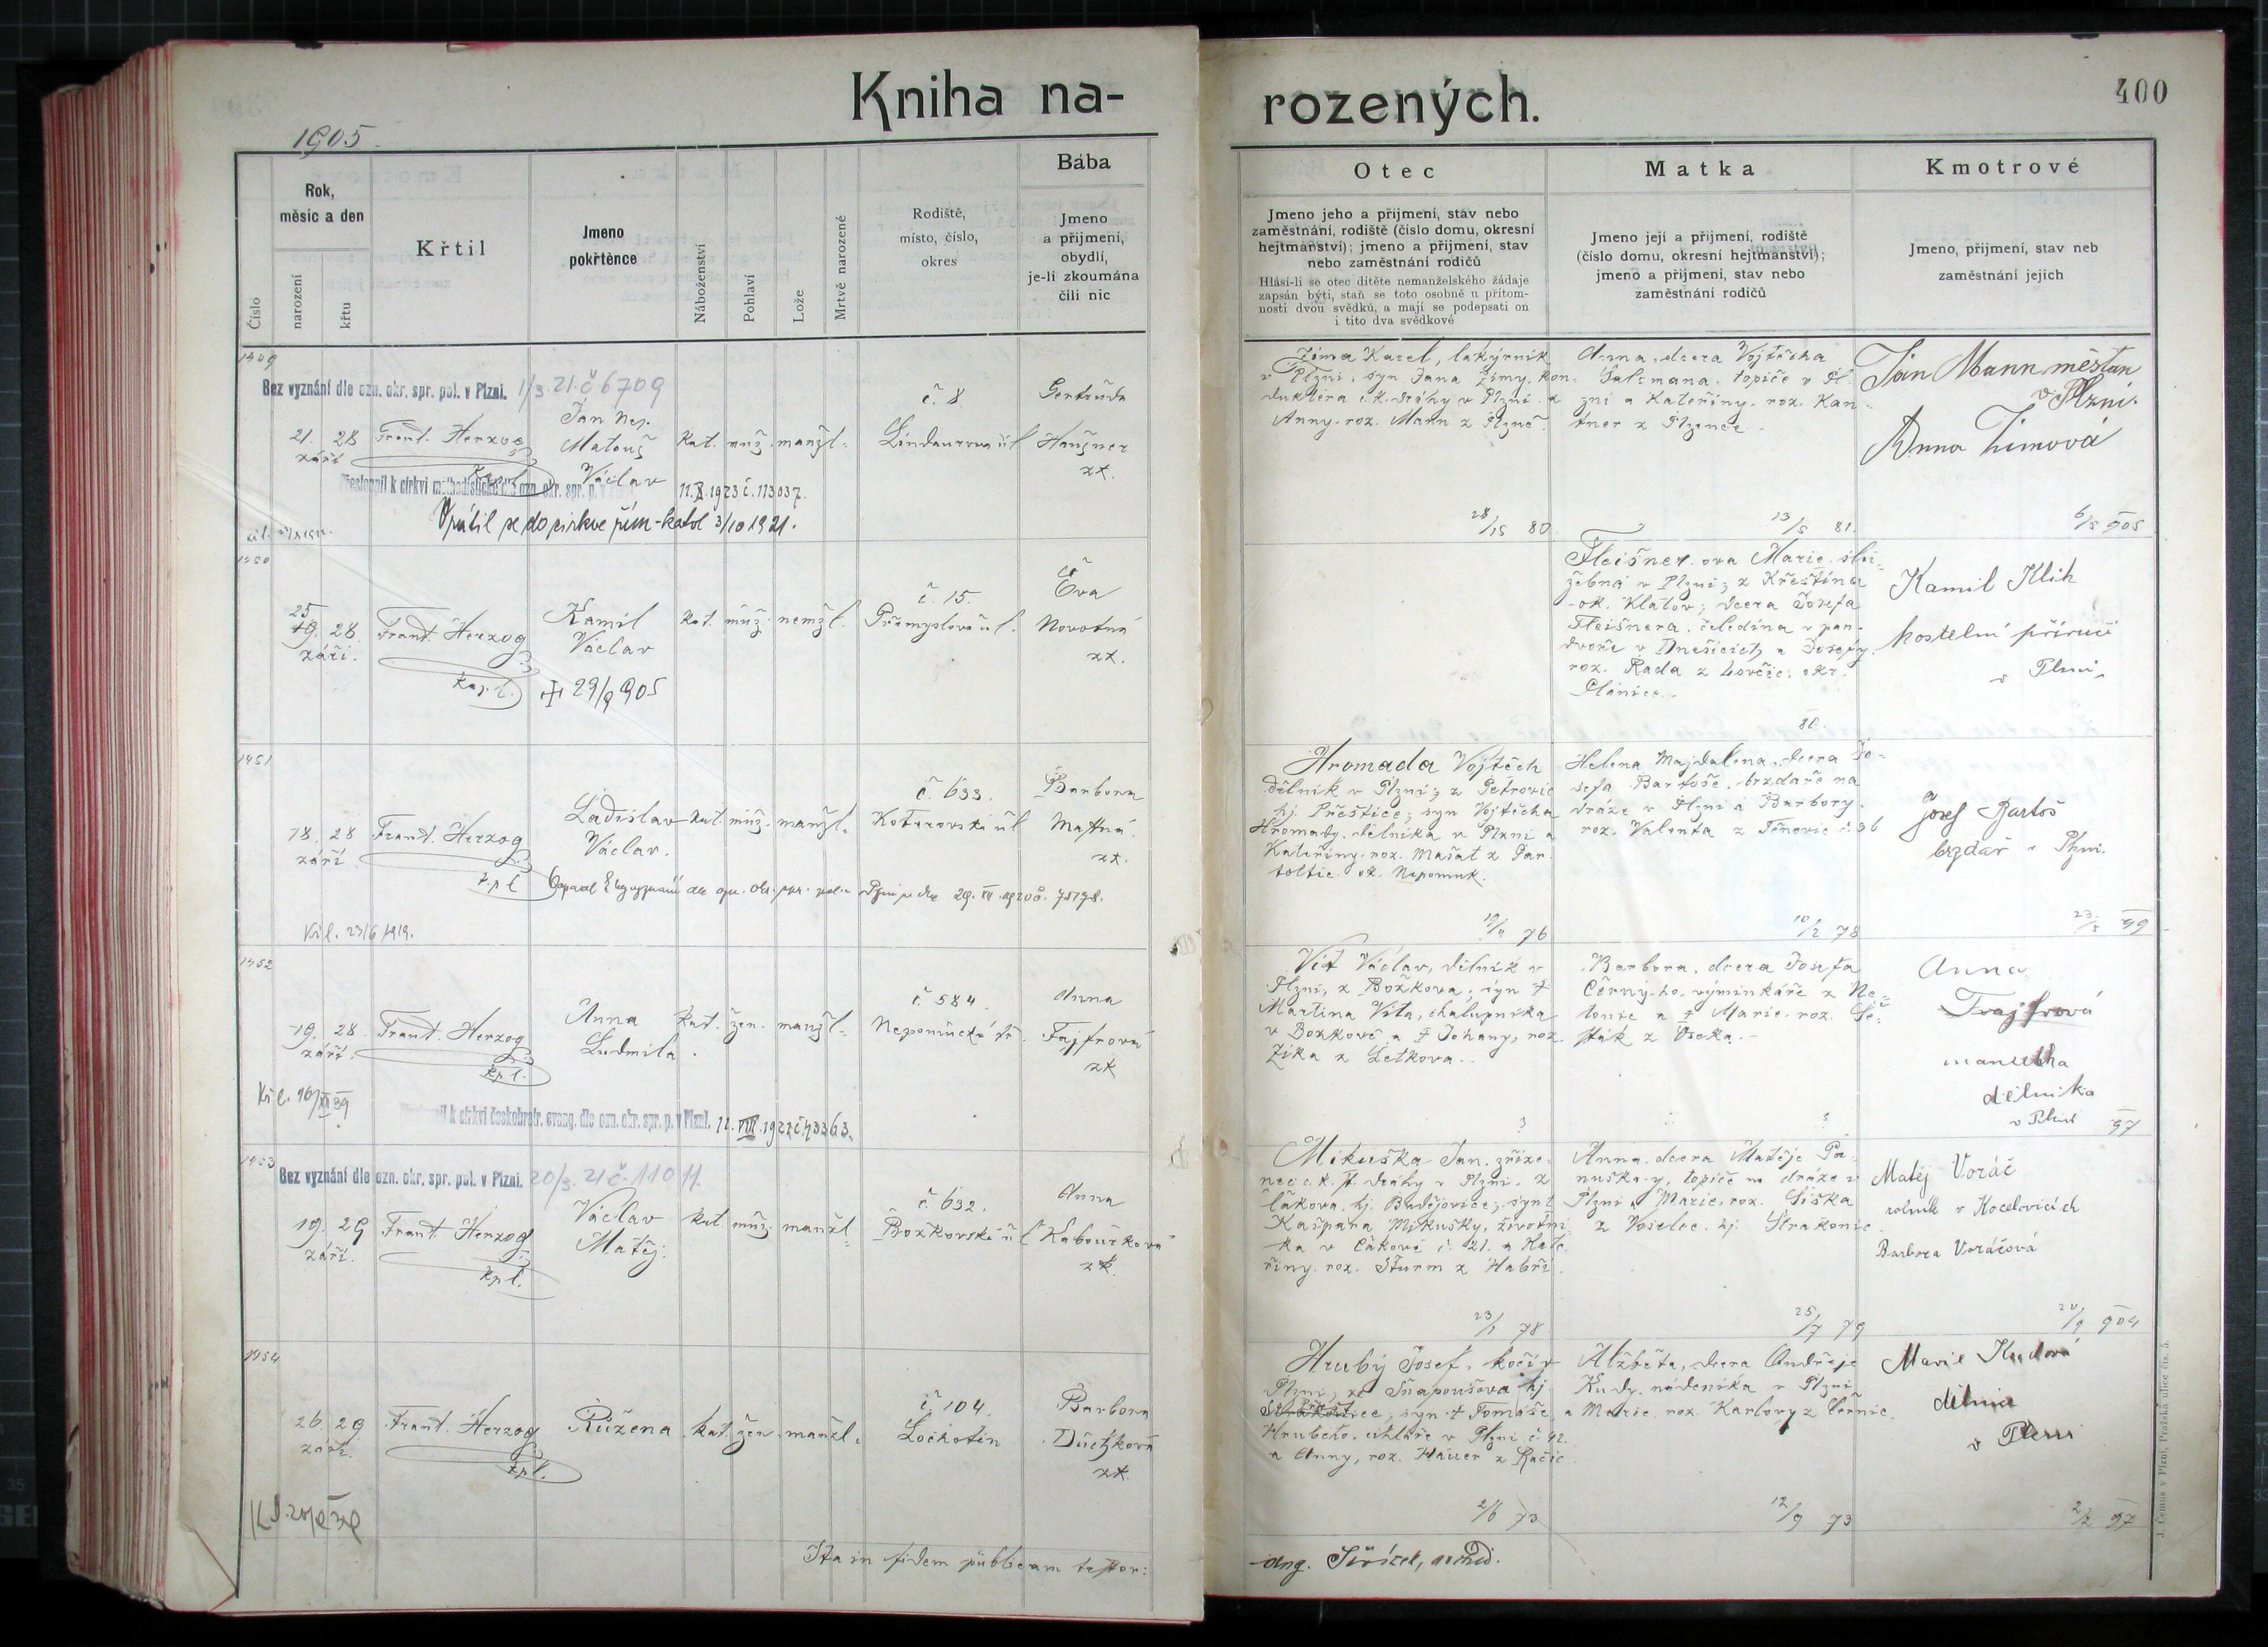 Kniha na-
rozených.
400
1905.
Číslo
Rok,
měsíc a den
narození
křtu
Křtil
Jmeno
pokřtěnce
Náboženství
Pohlaví
Lože
Mrtvě narozené
Rodiště,
místo, číslo,
okres
Bába
Jmeno
a přijmení,
obydlí,
je-li zkoumána
čili nic
Otec
Jmeno jeho a přijmení, stav nebo
zaměstnání, rodiště (číslo domu, okresní
hejtmanství); jmeno a přijmení, stav
nebo zaměstnání rodičů
Hlásí-li se otec dítěte nemanželského žádaje
zapsán býti, staň se toto osobně u přítom-
nosti dvou svědků, a mají se podepsati on
i tito dva svědkové
Matka
Jmeno její a přijmení, rodiště
(číslo domu, okresní hejtmanství);
jmeno a přijmení, stav nebo
zaměstnání rodičů
Kmotrové
Jmeno, přijmení, stav neb
zaměstnání jejich
1449
Bez vyznání dle ozn. okr. spr. pol. v Plzni. 1/3. 21. č 6709
21. 28
září
Frant. Herzog
Kpl.
Jan Nep.
Matouš
Václav
Kat. muž. manžl.
č. 8
Lindaurova ul
Gertruda
Haužner
zk.
Přestoupil k církvi methodistické dle ozn. okr. spr. p. 11.X.1923 č. 113037.
Vrátil se do církve řím-katol 3/10 1921.
Zíma Karel, lakýrník
v Plzni, syn Jana Zímy, kon-
duktéra c.k. dráhy v Plzni a
Anny roz. Mann z Plzně.
80
Anna, dcera Vojtěcha
Salzmana, topiče v Pl-
zni a Kateřiny, roz. Kan-
tner z Plzence
13/5 81.
Ján Mann měšťan
v Plzni.
Anna Zimová
6/5 905
1450
25
19. 28.
září.
Frant. Herzog
kapl.
Kamil
Václav
+ 29/9 905
Kat. muž. nemžl.
č. 15.
Přemyslova ul.
Eva
Novotná
zk.
Fleišner-ova Marie, slu-
žebná v Plzni; z Křeština
ok. Klatov; dcera Josefa
Fleišnera, čeledína v pan.
dvoře v Dnešicích a Josefy
roz. Rada z Lovčic, okr.
Plánice.
80.
Kamil Klik
kostelní příručí
v Plzni
1451
18. 28
září
Frant. Herzog
kpl
Ladislav
Václav.
kat. muž. manžl.
č. 633.
Koterovská ul
Barbora
Matná
zk.
29. VII. 1920 č. 75178.
Kř. l. 23/6 1919.
Hromada Vojtěch
dělník v Plzni; z Petrovic
hj. Přeštice; syn Vojtěcha
Hromady, dělníka v Plzni a
Kateřiny roz. Mašat z Par-
toltic ok. Nepomuk.
76
Helena Majdalena, dcera Jo-
sefa Bartoše, brzdaře na
dráze v Plzni a Barbory
roz. Valenta z Těnovic č. 36
10/2 78
Josef Bartoš
brzdař v Plzni.
99
1452
19. 28
září.
Frant. Herzog
kpl.
Anna
Ludmila.
kat. žen. manžl.
č 584.
Nepomucká tř.
Anna
Fajfrová
zk
k církvi českobratr. evang. dle ozn. okr. spr. p. v Plzni. 12. VIII. 1922 č. 93363.
Vít Václav, dělník v
Plzni, z Božkova; syn †
Martina Víta, chalupníka
v Božkově a † Johany, roz.
Zíka z Letkova.
?
Barbora, dcera Josefa
Černý-ho, výminkáře z Ne-
tonic a † Marie, roz. Še-
sták z Oseka.
?
Anna
Frajfrová
manželka
dělníka
v Plzni
97
1453
Bez vyznání dle ozn. okr. spr. pol. v Plzni. 20/3. 21 č. 11011
19. 29
září.
Frant. Herzog
kpl.
Václav
Matěj.
kat. muž. manžl
č. 632.
Božkovská ul
Anna
Kabourková
zk.
Mikuška Jan, zříze-
nec c.k. st. dráhy v Plzni, z
Čakova, hj. Budějovice; syn †
Kašpara Mikušky, životní-
ka v Čakově č. 21. a Kate-
řiny, roz. Šturm z Habří.
23/1 78
Anna, dcera Matěje Pa-
nuška-y, topiče na dráze v
Plzni a Marie, roz. Šiška
z Voselec, hj. Strakonic
25/7 79
Matěj Voráč
rolník v Kocelovicích
Barbora Voráčová
904
1454
26. 29
září.
Frant. Herzog
kpl.
Růžena
kat. žen. manžl.
č. 104.
Lochotín
Barbora
Dučková
zk.
Hrubý Josef, kočí v
Plzni, ze Sňapoušova hj
Strakonice, syn † Tomáše
Hrubého, cihláře v Plzni č. 42.
a Anny, roz. Hauer z Račic
2/6 73
Alžběta, dcera Ondřeje
Kudy, nádeníka v Plzni
a Marie roz. Karlovy z Černic.
12/9 73
Marie Kudová
dělnice
v Plzni
2/2 97
Ita in fidem publicam testor:
J. Čemus v Plzni, Pražská ulice čís. 5.